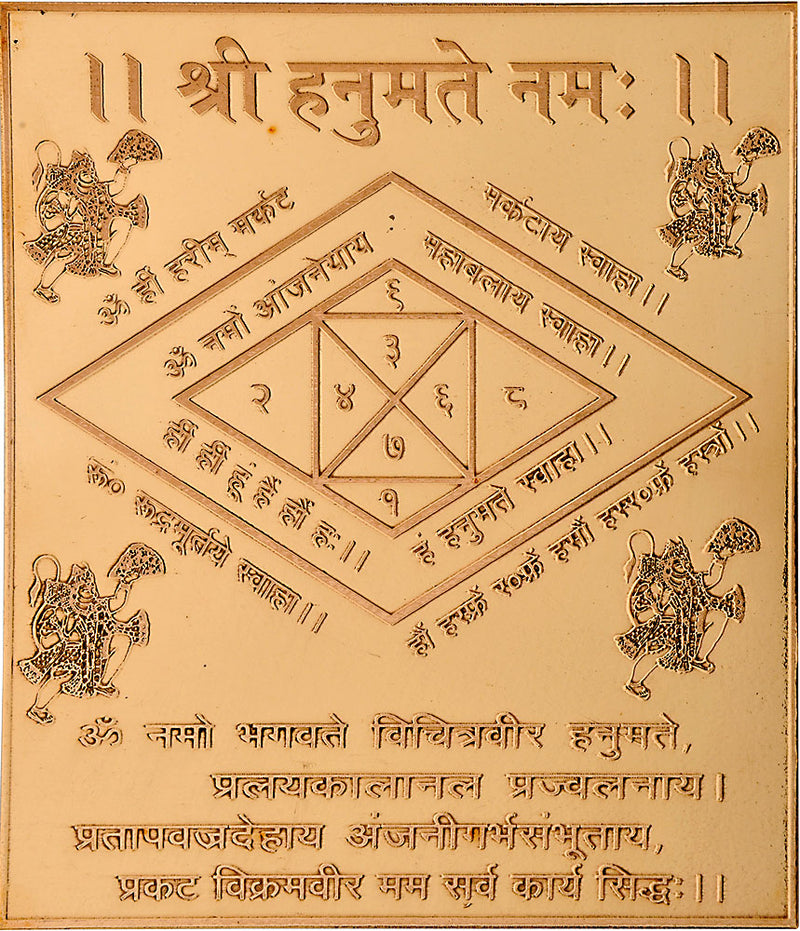 ।। श्री हनुमते नमः ।।
ॐ ह्रीं हरीम् मर्कट
मर्कटाय स्वाहा।।
ॐ नमों आंजनेयाय
महाबलाय स्वाहा।।
६
३
२ ४ ६ ८
७
१
ह्रीं ह्रीं हूं ह्रैं ह्रौं हः।।
हं हनुमते स्वाहा।।
रूं० रूद्रमूर्तये स्वाहा।।
ॐ नमो भगवते विचित्रवीर हनुमते,
प्रलयकालानल प्रज्वलनाय।
प्रतापवज्रदेहाय अंजनीगर्भसंभूताय,
प्रकट विक्रमवीर मम सर्व कार्य सिद्धः।।